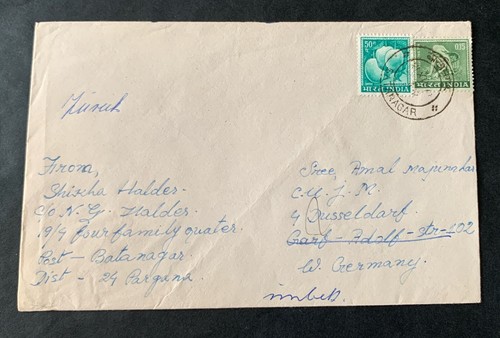 50 P
भारत INDIA
0.15
भारत INDIA
NAGAR
Zurück
From,
Shissha Halder.
C/o N. G. Halder.
19/4 four family quater.
Post - Batanagar
Dist - 24 Pargana
Sree, Amal Majumdar
C.U.J.M.
4 Dusseldorf.
Garf - Adolf - Str - 102
W. Germany.
unbek.